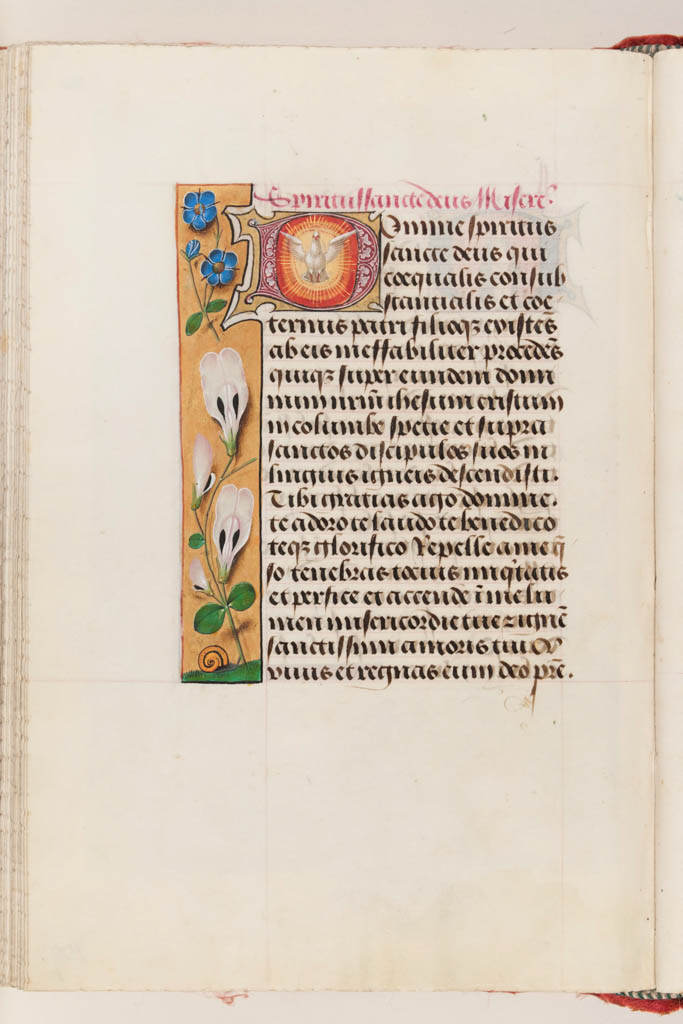 Spiritussancte deus Misere᷑
Domine spiritus
sancte deus qui
coequalis consub
stantialis et coe
ternus patri filioqꝫ existẽs
ab eis ineffabiliter procedẽs
quiqꝫ super eundem domi
num nrm̃ ihesum cristum
in columbe specie et supra
sanctos discipulos suos in
linguis igneis descendisti.
Tibi gratias ago domine.
te adoro te laudo te benedico
teqꝫ glorifico Repelle a me q̃
so tenebras tocius iniqͥtatis
et perfice et accende ĩ me lu
men misericordie tue ⁊ ignẽ
sanctissimi amoris tui Qͥ
viuis et regnas cum deo prẽ.